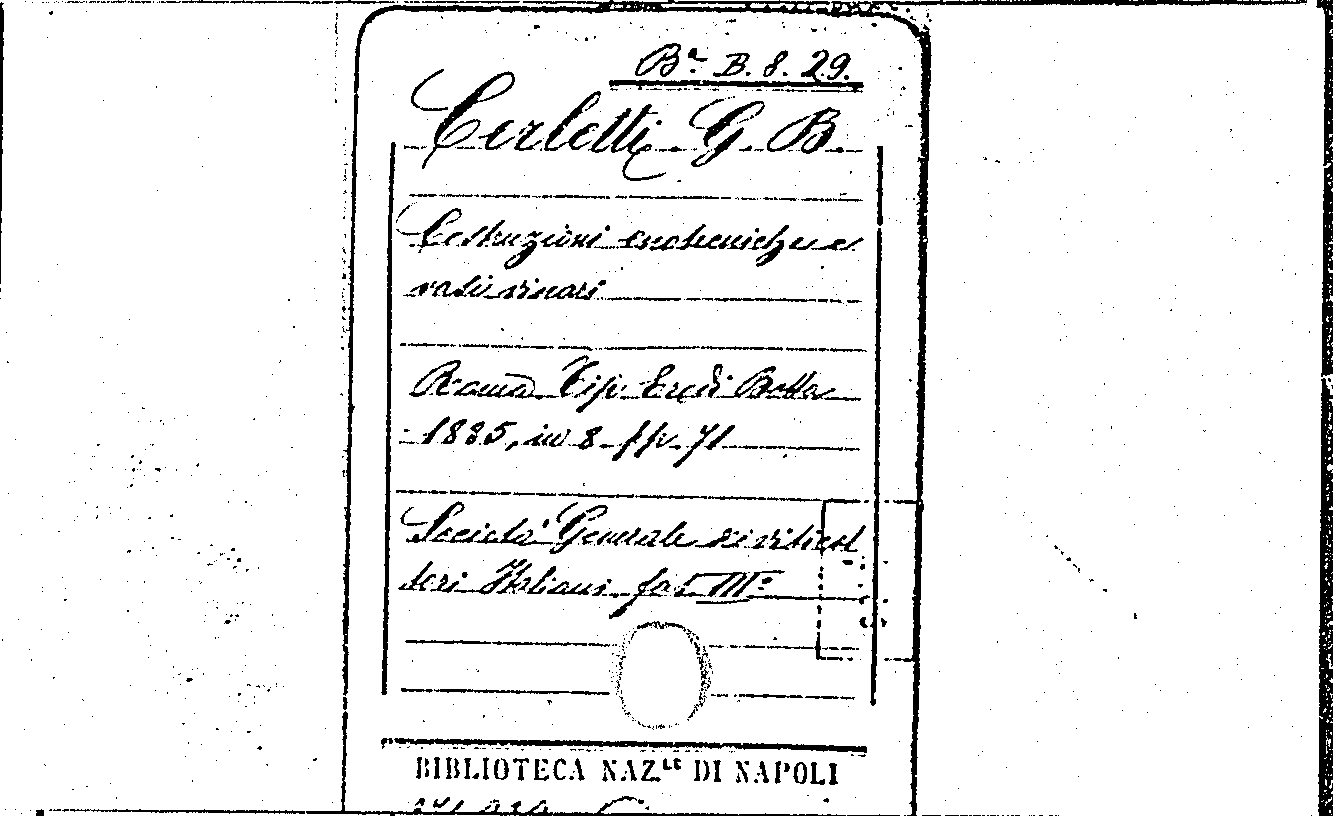 Bª B. 8. 29.
Cerletti. G. B.
Costruzioni enotecniche e
vasi vinari
Roma Tip. Eredi Botta
1885, in 8. pp. 71
Società Generale di viticol
tori Italiani, fas. IIIº
BIBLIOTECA NAZ.LE DI NAPOLI